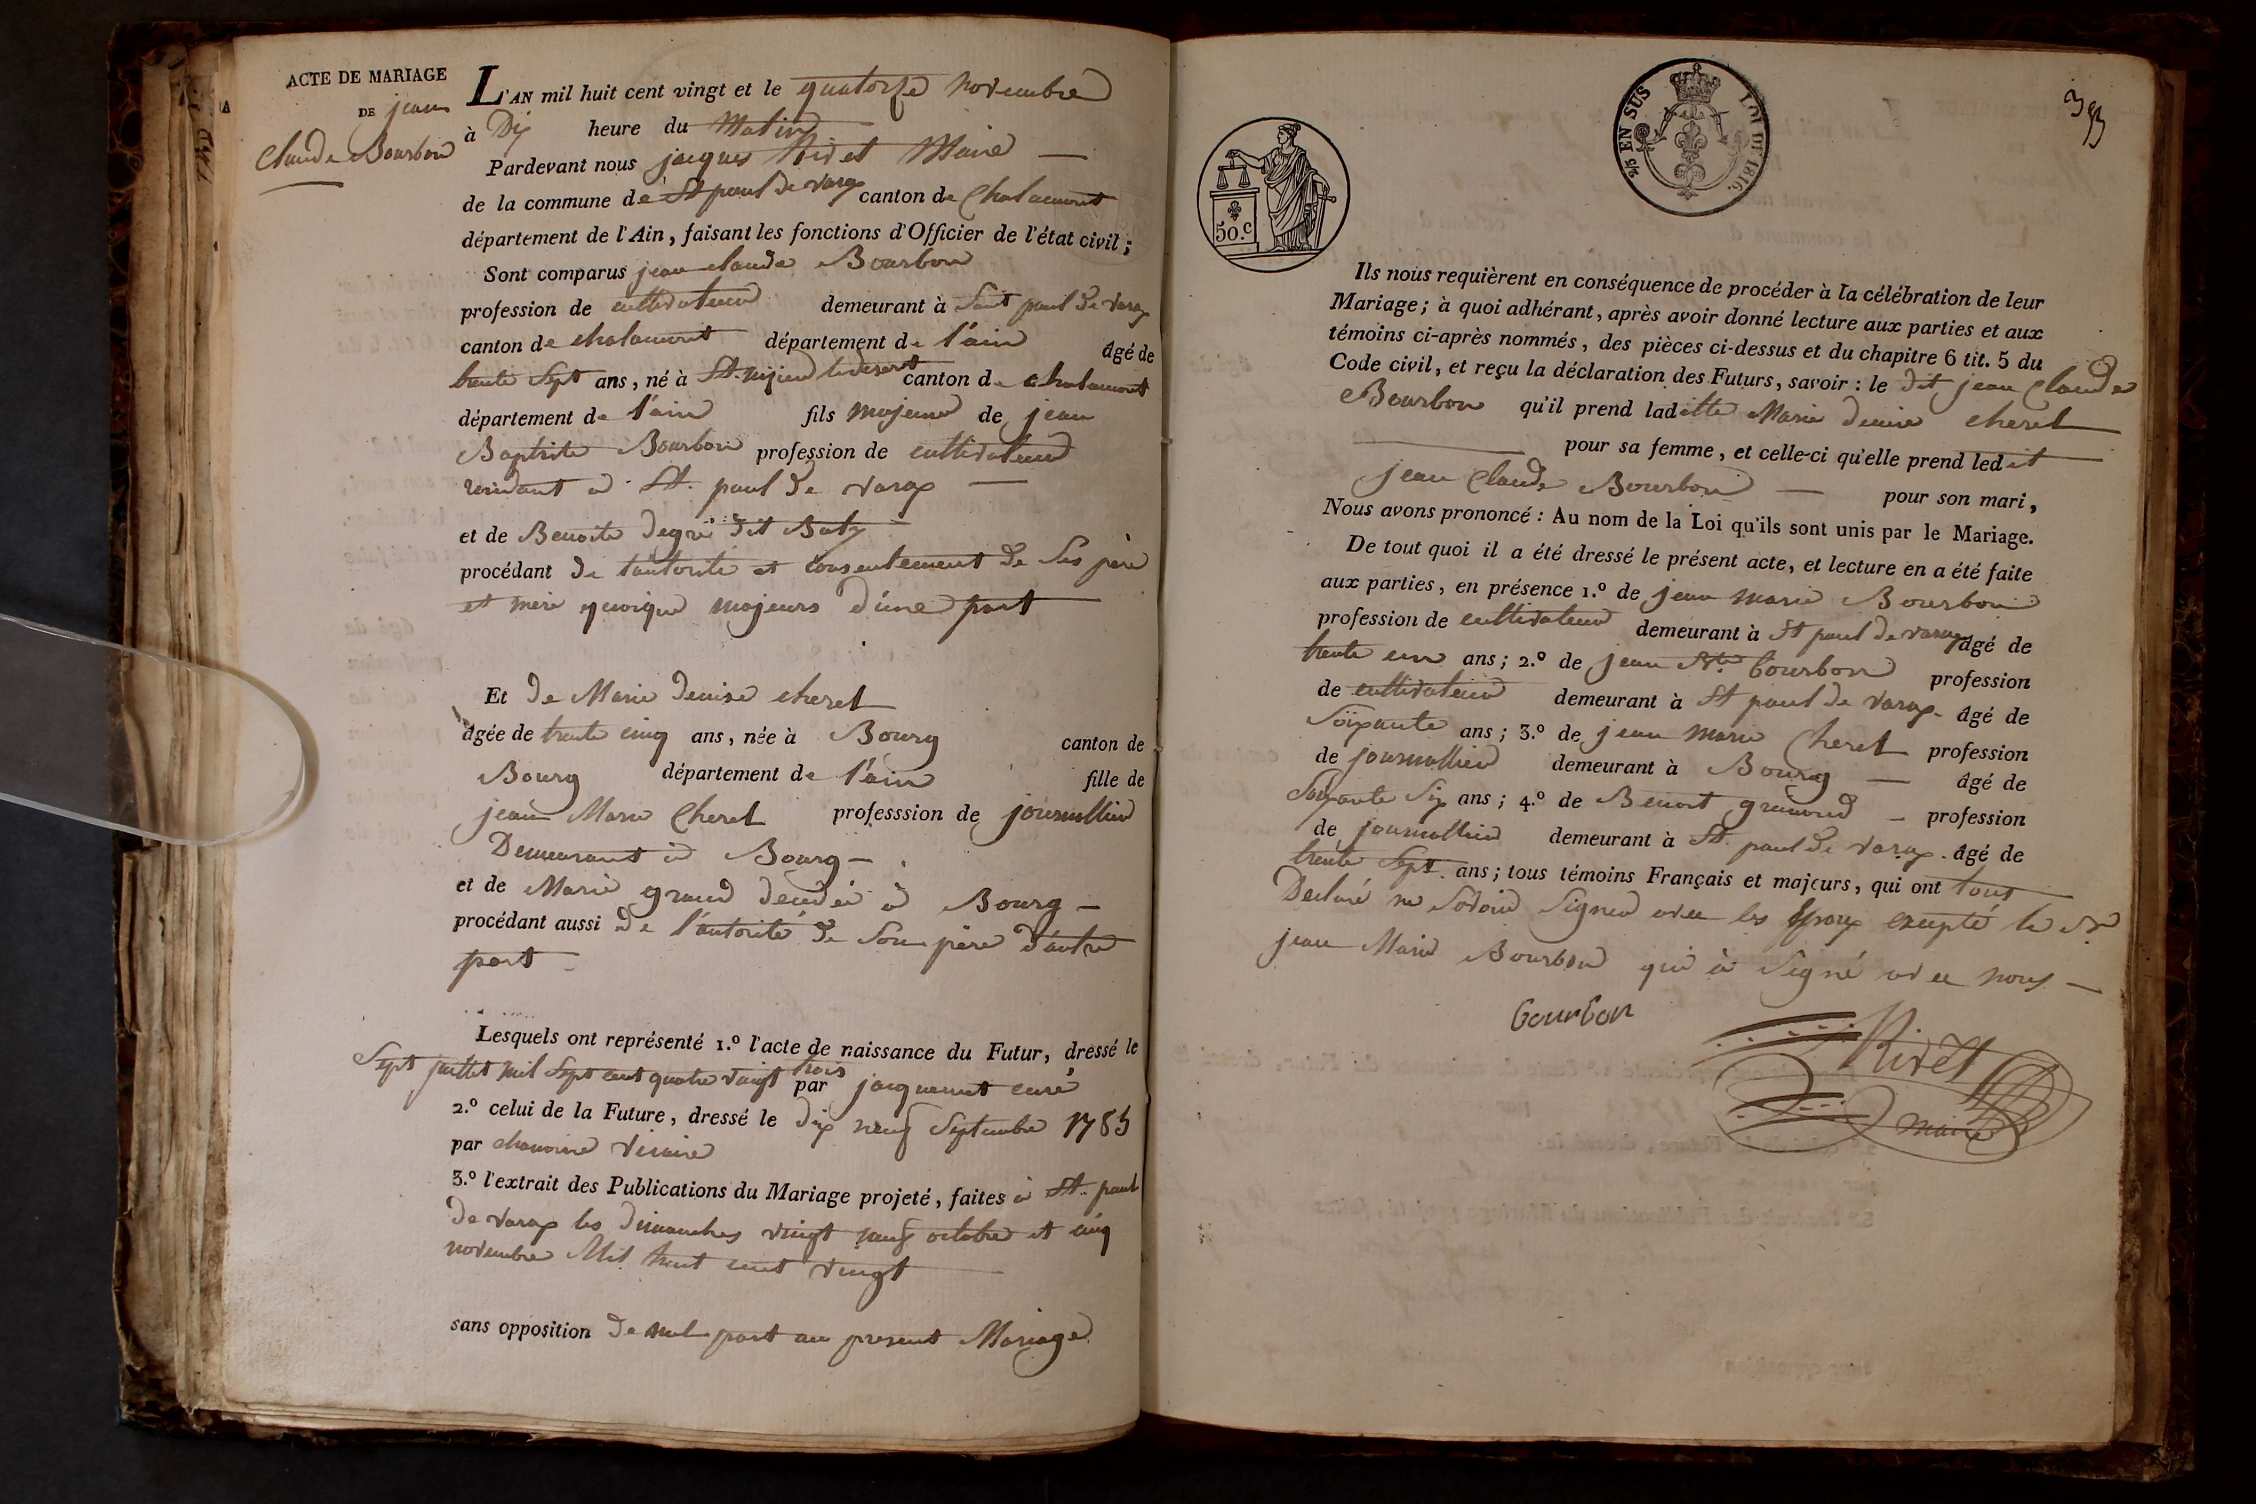 ACTE DE MARIAGE
DE jean
Claude Bourbon
L'AN mil huit cent vingt et le quatorze novembre
à Dix heure du Matin
Pardevant nous jacques Rivet Maire
de la commune de St paul de varax canton de Chalamont
département de l'Ain, faisant les fonctions d'Officier de l'état civil ;
Sont comparus jean claude Bourbon
profession de cultivateur demeurant à Saint paul de varax
canton de chalamont département de l'ain âgé de
trente Sept ans, né à St. nizier le desert canton de chalamont
département de l'ain fils majeur de jean
Baptiste Bourbon profession de cultivateur
residant à St. paul de varax
et de Benoite degré dit Batz
procédant de l'autorité et consentement de Ses père
et mère quoique majeurs d'une part
Et de Marie denise cheret
âgée de trente cinq ans, née à Bourg canton de
Bourg département de l'ain fille de
jean Marie Cheret professsion de journallier
Demeurant à Bourg
et de Marie grand décédée à Bourg
procédant aussi de l'autorité de Son père d'autre
part
Lesquels ont représenté 1.º l'acte de naissance du Futur, dressé le
Sept juillet mil Sept cent quatre vingt trois par jacquemet curé
2.º celui de la Future, dressé le dix neuf Septembre 1785
par chanoine vicaire
3.º l'extrait des Publications du Mariage projeté, faites à St. paul
de varax les dimanches vingt neuf octobre et cinq
novembre Mil huit cent vingt
sans opposition de nul part au present Mariage
393
50.c
2/5 EN SUS
LOI DE 1816.
Ils nous requièrent en conséquence de procéder à la célébration de leur
Mariage ; à quoi adhérant, après avoir donné lecture aux parties et aux
témoins ci-après nommés, des pièces ci-dessus et du chapitre 6 tit. 5 du
Code civil, et reçu la déclaration des Futurs, savoir : le dit jean Claude
Bourbon qu'il prend laditte Marie denise cheret
pour sa femme, et celle-ci qu'elle prend ledit
jean Claude Bourbon pour son mari,
Nous avons prononcé : Au nom de la Loi qu'ils sont unis par le Mariage.
De tout quoi il a été dressé le présent acte, et lecture en a été faite
aux parties, en présence 1.º de jean marie Bourbon
profession de cultivateur demeurant à St paul de varax âgé de
trente un ans ; 2.º de jean Bte. bourbon profession
de cultivateur demeurant à St paul de varax âgé de
Soixante ans ; 3.º de jean marie Cheret profession
de journallier demeurant à Bourg âgé de
Soixante Six ans ; 4.º de Benoit profession
de journallier demeurant à St. paul de varax âgé de
trente Sept ans ; tous témoins Français et majeurs, qui ont tous
Declaré ne Savoir Signer avec les Epoux excepté le Sr
jean Marie Bourbon qui à Signé avec nous
bourbon
Rivet
maire